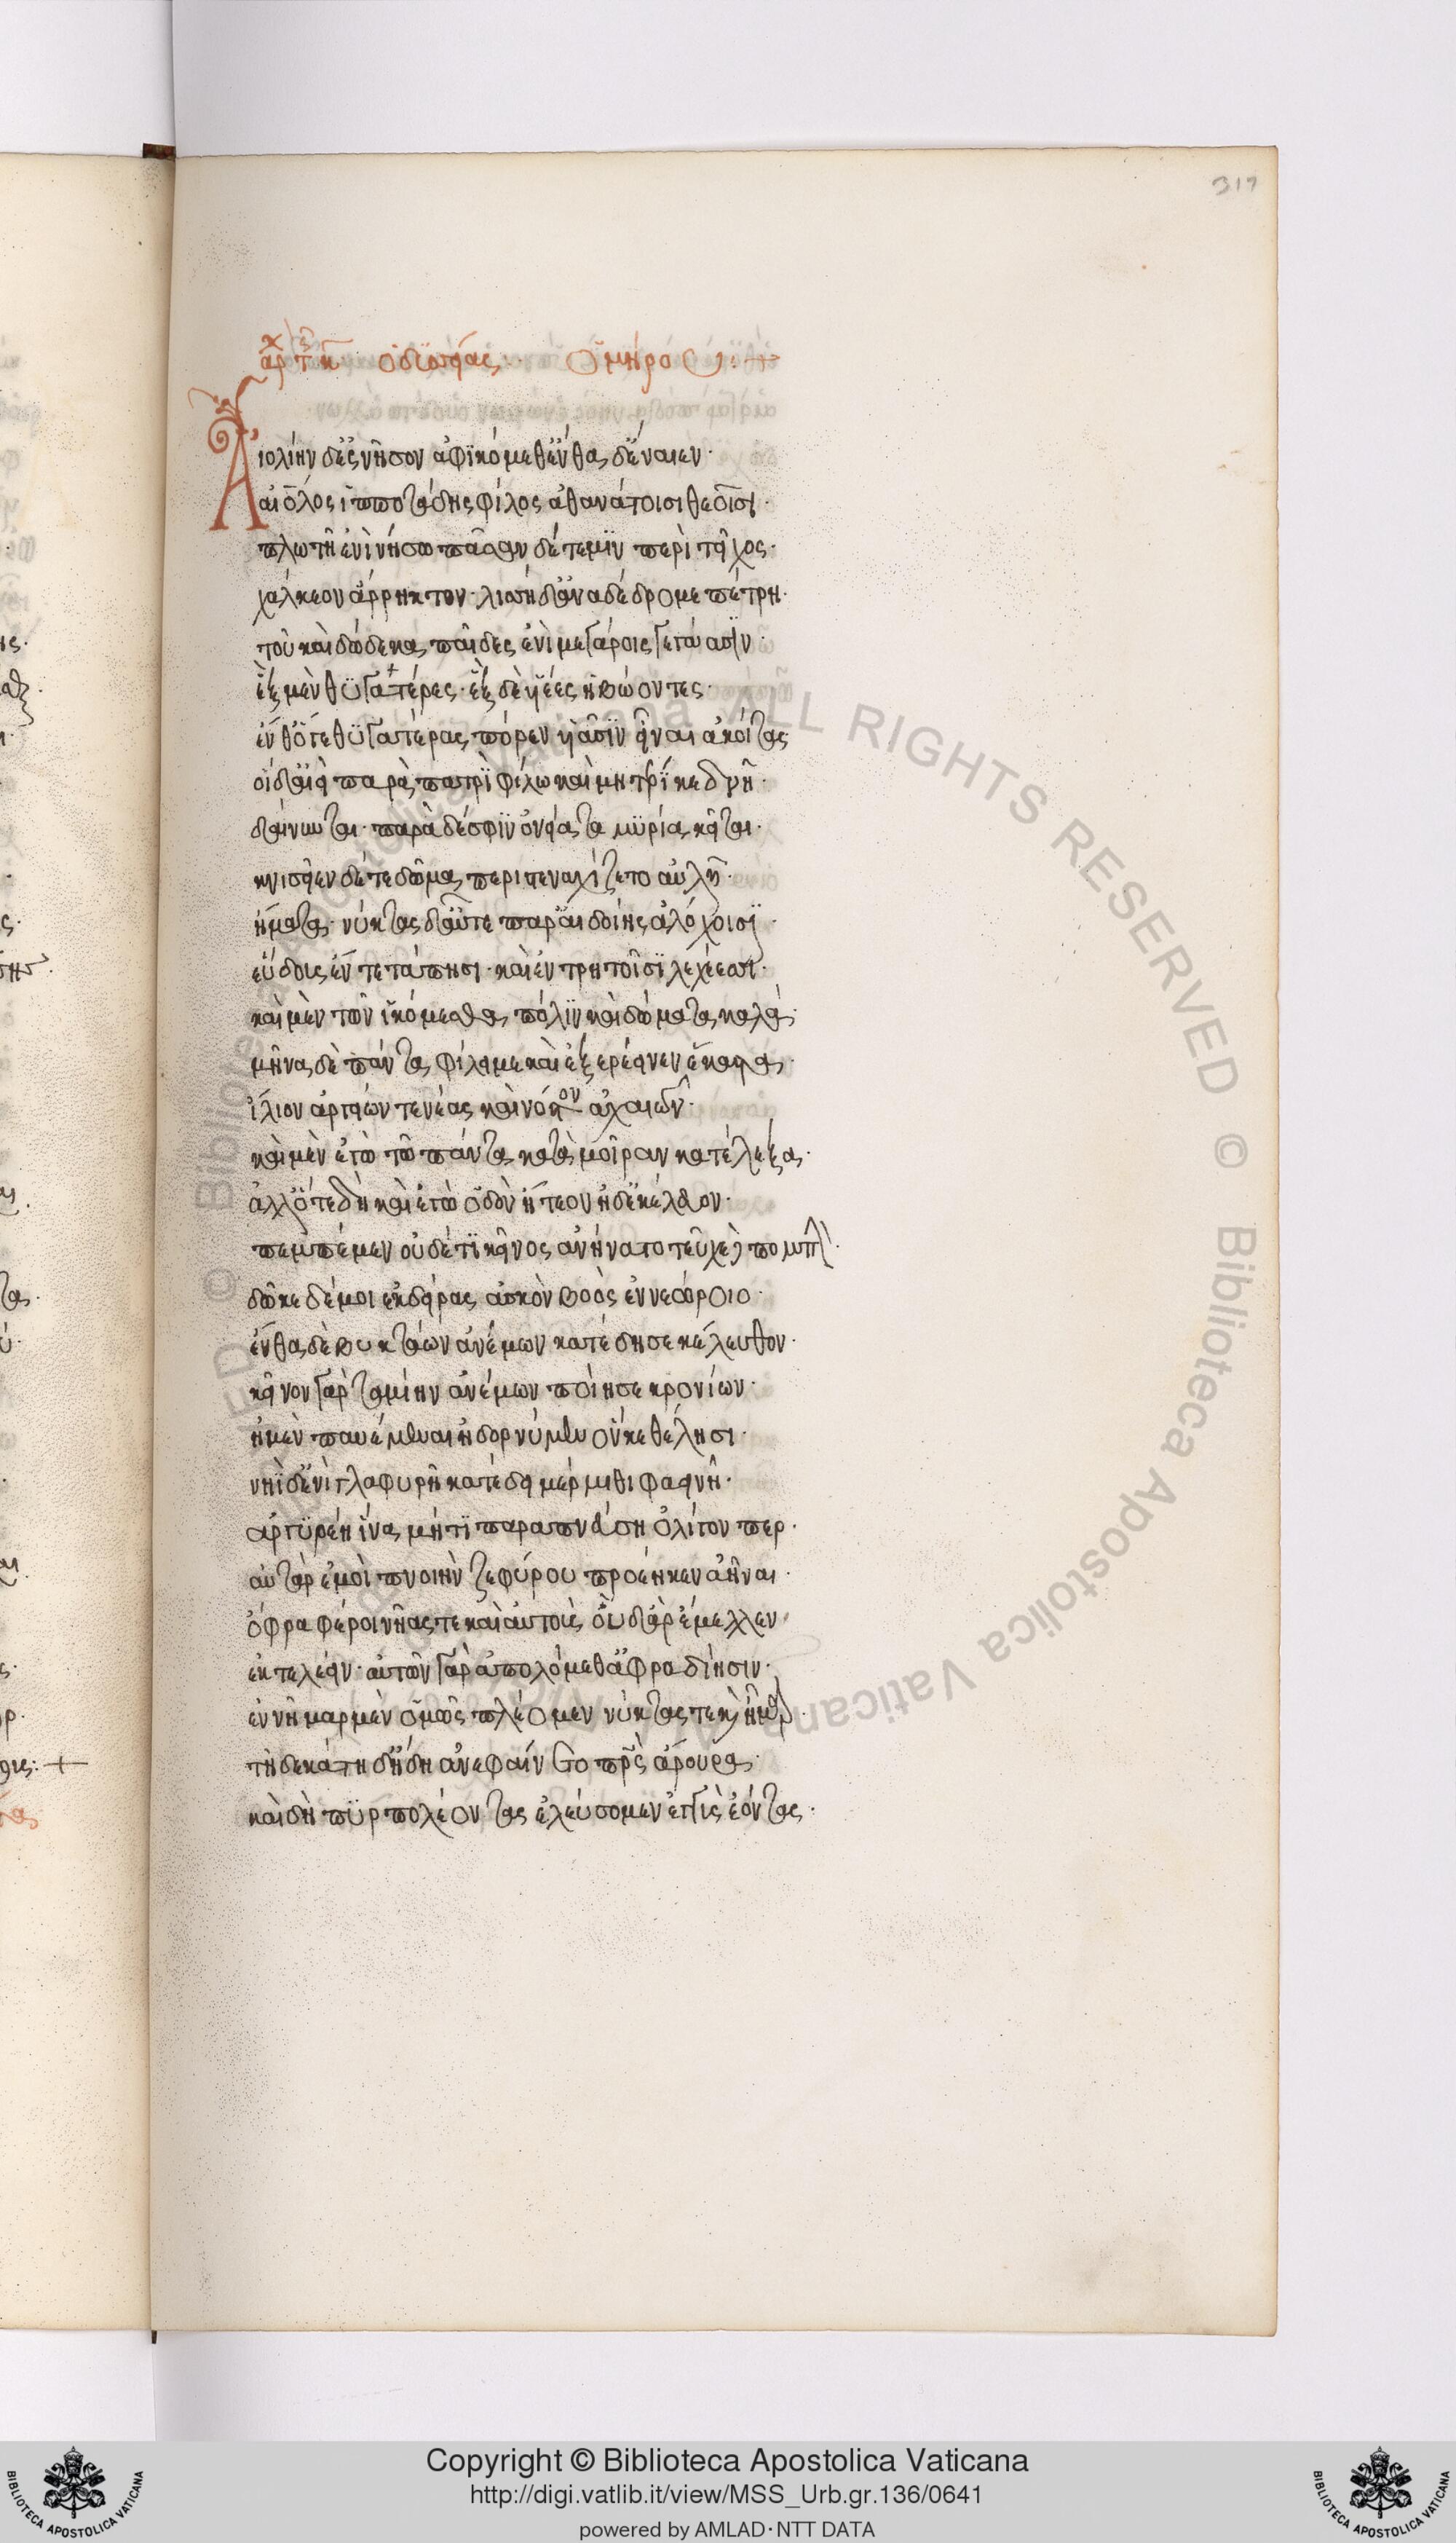 317
ἀρχ τῆς κ ὀδϋσσείας · Ὁμήρου :+
Αἰολίην δ' ἐς νῆσον ἀφϊκόμεθ' ἔνθα δ' ἔναιεν ·
αἰόλος ἱπποτάδης φίλος ἀθανάτοισι θεοῖσι ·
πλωτῆ ἐνὶ νήσω πᾶσαν δέ τέ μϊν περὶ τεῖχος ·
χάλκεον ἄρρηκτον · λισσὴ δ' ἀναδέδρομε πέτρη ·
τοῦ καὶ δώδεκα παῖδες ἐνὶ μεγάροις γεγάασϊν ·
ἓξ μὲν θϋγατέρες · ἓξ δὲ ϋἱέες ἡβώοντες ·
ἔνθ' ὅγε θϋγατέρας πόρεν υἱάσϊν εἶναι ἀκοίτας
οἱ δ' αἰεὶ παρὰ πατρὶ φίλω καὶ μητρὶ κεδνῆ ·
δαίνυνται · παρὰ δέ σφϊν ὀνείατα μϋρία κεῖται ·
κνισῆεν δέ τε δῶμα περιστεναχίζετο αὐλῆ ·
ἤματα · νύκτας δ' αὖτε παρ' αἰδοίης ἀλόχοισϊ ·
εὕδουσ' ἔν τε τάπησι · καὶ ἐν τρητοῖσϊ λεχέεσσι ·
καὶ μὲν τῶν ἱκόμεσθα πόλϊν καὶ δώματα καλά ·
μῆνα δὲ πάντα φίλει με καὶ ἐξερέεινεν ἕκαστα ·
ἴλιον ἀργείων τε νέας καὶ νόστον ἀχαιῶν ·
καὶ μὲν ἐγὼ τῶ πάντα κατὰ μοῖραν κατέλεξα ·
ἀλλ' ὅτε δὴ καὶ ἐγὼ ὁδὸν ἤτεον ἠδ' ἐκέλευον ·
πεμπέμεν οὐδέ τϊ κεῖνος ἀνήνατο τεῦχε δὲ πομπὴν ·
δῶκε δέ μοι ἐκδείρας ἀσκὸν βοὸς ἐννεώροιο ·
ἔνθα δὲ βυκτάων ἀνέμων κατέδησε κέλευθον ·
κεῖνον γὰρ ταμίην ἀνέμων ποίησε κρονίων ·
ἠμὲν παυέμεναι ἠδ' ὀρνύμεν ὅν κε θέλησι ·
νηῒ δ' ἐνὶ γλαφυρῆ κατέδει μέρμιθι φαεινῆ ·
ἀργϋρέη ἵνα μήτϊ παραπνεύση ὀλίγον περ ·
αὐτὰρ ἐμοὶ πνοιὴν ζεφύρου προέηκεν ἀῆναι ·
ὄφρα φέροι νῆάς τε καὶ αὐτούς οὐδ' ἄρ' ἔμελλεν
ἐκτελέειν · αὐτῶν γὰρ ἀπολόμεθ' ἀφραδίησιν ·
ἐννῆμαρ μὲν ὁμῶς πλέομεν νύκτας τε καὶ ἦμαρ ·
τῆ δεκάτη δ' ἤδη ἀνεφαίνετο πατρὶς ἄρουρα ·
καὶ δὴ πϋρπολέοντας ἐλεύσομεν ἐγγὺς ἐόντας ·
© Biblioteca Apostolica Vaticana ALL RIGHTS RESERVED
Copyright © Biblioteca Apostolica Vaticana
http://digi.vatlib.it/view/MSS_Urb.gr.136/0641
powered by AMLAD·NTT DATA
BIBLIOTECA APOSTOLICA VATICANA
BIBLIOTECA APOSTOLICA VATICANA